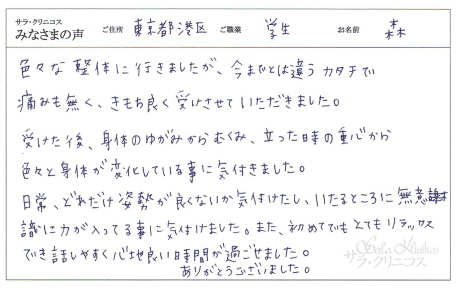 サラ・クリニコス
みなさまの声 ご住所 東京都港区 ご職業 学生 お名前 森
色々な整体に行きましたが、今までとは違うカタチで
痛みも無く、きもち良く受けさせていただきました。
受けた後、身体のゆがみからむくみ、立った時の重心から
色々と身体が変化している事に気付きました。
日常、どれだけ姿勢が良くないか気付けたし、いたるところに無意
識に力が入ってる事に気付けました。また、初めてでもとてもリラックス
でき話しやすく心地良い時間が過ごせました。
ありがとうございました。
サラ・クリニコス